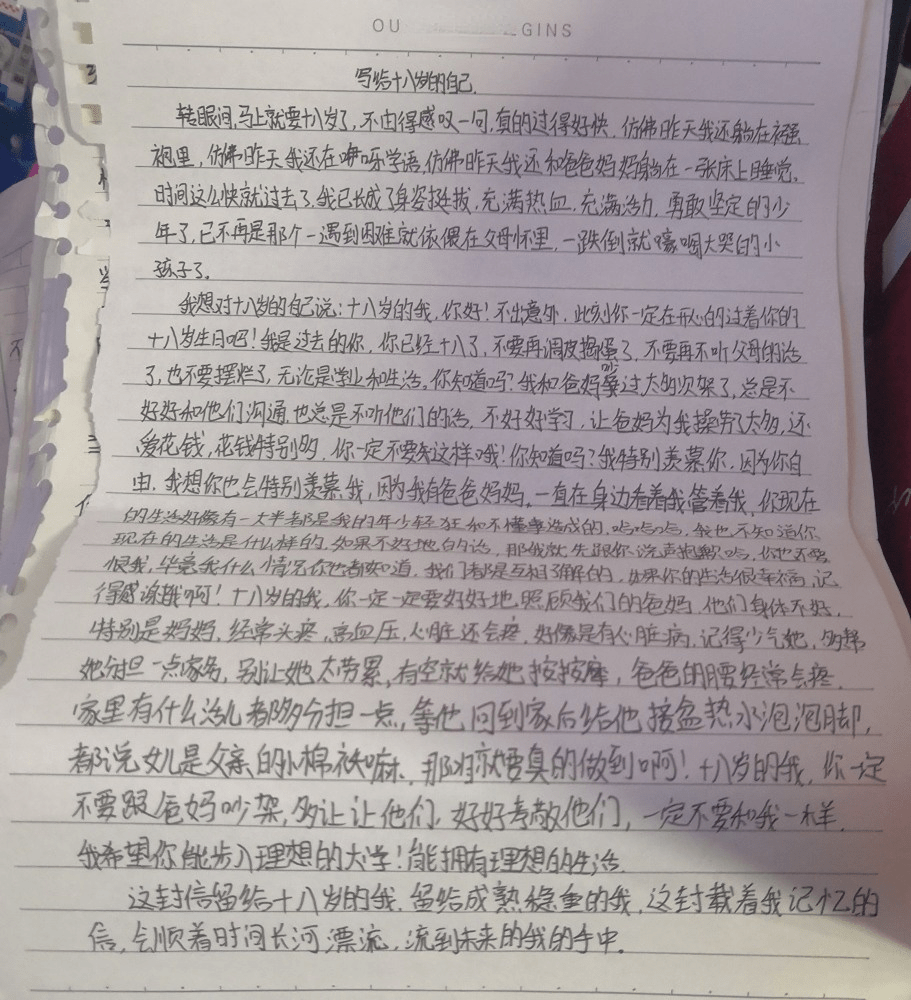 OU GINS
写给十八岁的自己.
转眼间,马上就要十八岁了,不由得感叹一句,真的过得好快,仿佛昨天我还躺在襁
褓里,仿佛昨天我还在咿呀学语,仿佛昨天我还和爸爸妈妈躺在一张床上睡觉,
时间这么快就过去了,我已长成了身姿挺拔,充满热血,充满活力,勇敢坚定的少
年了,已不再是那个一遇到困难就依偎在父母怀里,一跌倒就嚎啕大哭的小
孩子了。
我想对十八岁的自己说:十八岁的我,你好!不出意外,此刻你一定在开心的过着你的
十八岁生日吧!我是过去的你,你已经十八了,不要再调皮捣蛋了,不要再不听父母的话
了,也不要摆烂了,无论是学业和生活。你知道吗?我和爸妈吵过太多次架了,总是不
好好和他们沟通,也总是不听他们的话,不好好学习,让爸妈为我操劳了太多,还
爱花钱,花钱特别多,你一定不要和这样哦!你知道吗?我特别羡慕你,因为你自
由,我想你也会特别羡慕我,因为我有爸爸妈妈,一直在身边看着我管着我,你现在
的生活好像有一大半都是我的年少轻狂和不懂事造成的,呜呜呜,我也不知道你
现在的生活是什么样的,如果不好地的话,那我就先跟你说声抱歉呜,你也不要
恨我,毕竟我什么情况你也都知道,我们都是互相了解的,如果你的生活很幸福,记
得感谢我啊!十八岁的我,你一定一定要好好地照顾我们的爸妈,他们身体不好,
特别是妈妈,经常头疼,高血压,心脏还会疼,好像是有心脏病,记得少气她,多帮
她分担一点家务,别让她太劳累,有空就给她按按摩,爸爸的腰经常会疼,
家里有什么活儿都多分担一点,等他回到家后给他接盆热水泡泡脚,
都说女儿是父亲的小棉袄嘛,那就要真的做到啊!十八岁的我,你一定
不要跟爸妈吵架,多让让他们,好好孝敬他们,一定不要和我一样,
我希望你能步入理想的大学!能拥有理想的生活.
这封信留给十八岁的我,留给成熟稳重的我,这封载着我记忆的
信,会顺着时间长河漂流,流到未来的我的手中。